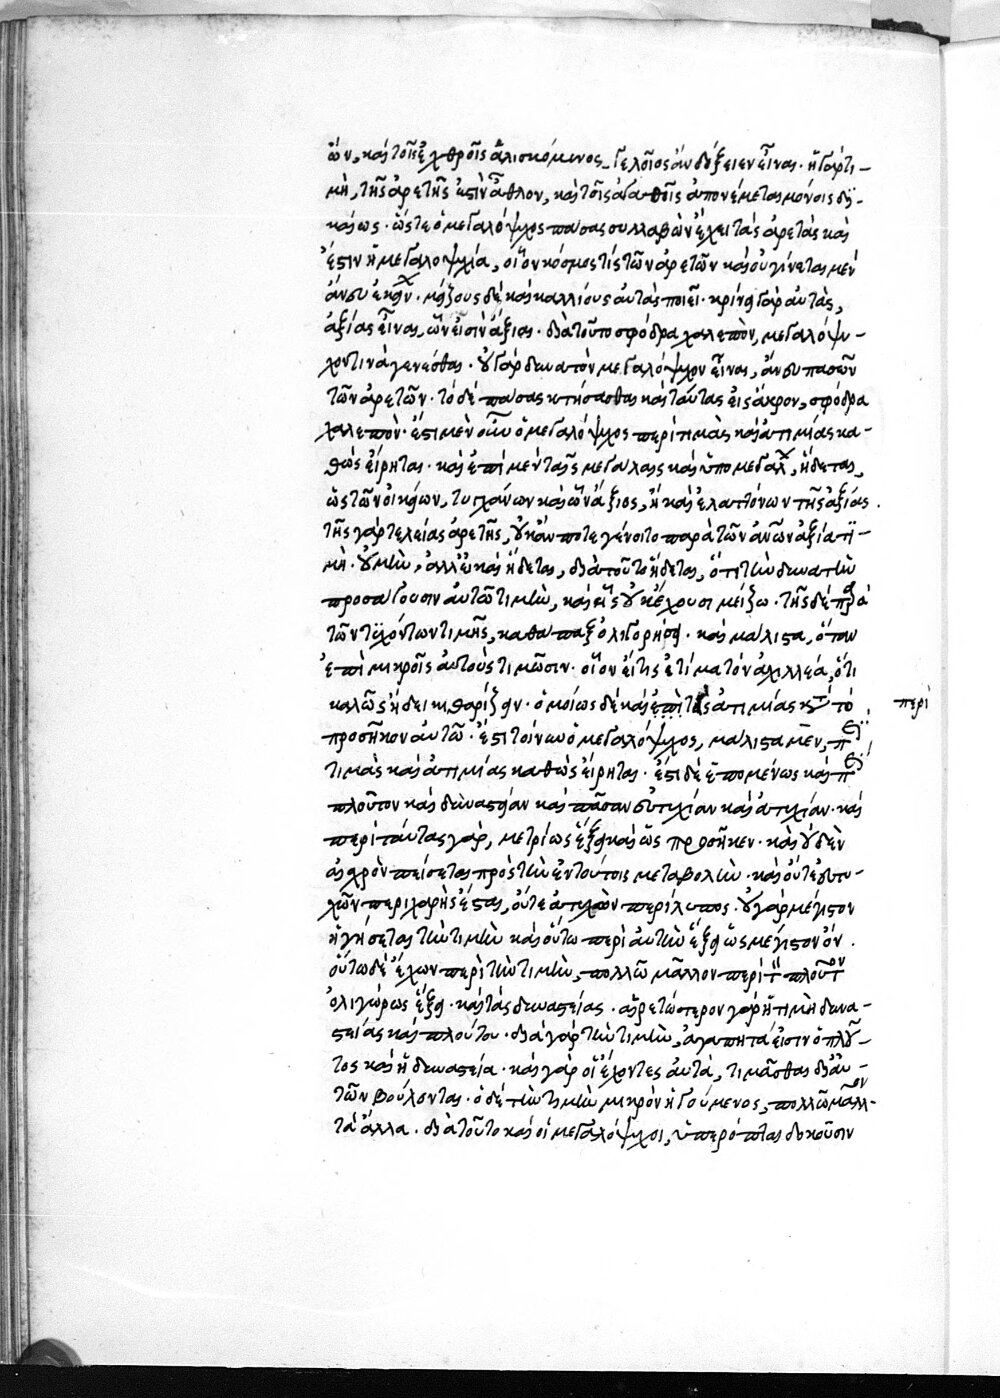 ὢν, καὶ τοῖς ἐχθροῖς ἁλισκόμενος, γελοῖος ἂν δόξειεν εἶναι. ἡ γὰρ τι-
μὴ, τῆς ἀρετῆς ἐστὶν ἆθλον, καὶ τοῖς ἀγαθοῖς ἀπονέμεται μόνοις δι-
καίως. ὥστε ὁ μεγαλόψυχος πάσας συλλαβὼν ἔχει τὰς ἀρετὰς καὶ
ἔστιν ἡ μεγαλοψυχία, οἷον κόσμος τίς τῶν ἀρετῶν καὶ οὐ γίνεται μὲν
ἄνευ ἐκείνων. μείζους δὲ καὶ καλλίους αὐτὰς ποιεῖ. κρίνει γὰρ αὐτὰς,
ἀξίας εἶναι, ὧν εἰσὶν ἄξιαι. διὰ τοῦτο σφόδρα χαλεπὸν, μεγαλόψυ-
χόν τινα γενέσθαι. οὐ γὰρ δυνατὸν μεγαλόψυχον εἶναι, ἄνευ πασῶν
τῶν ἀρετῶν. τὸ δὲ πάσας κτήσασθαι καὶ ταύτας εἰς ἄκρον, σφόδρα
χαλεπὸν. ἔστι μὲν οὖν ὁ μεγαλόψυχος περὶ τιμὰς καὶ ἀτιμίας κα-
θὼς εἴρηται. καὶ ἐπὶ μὲν ταῖς μεγάλαις καὶ ὑπὸ μεγάλων, ἥδεται,
ὡς τῶν οἰκείων, τυγχάνων καὶ ὧν ἄξιος, ἢ καὶ ἐλαττόνων τῆς ἀξίας.
τῆς γὰρ τελείας ἀρετῆς, οὐκ ἄν ποτε γένοιτο παρὰ τῶν ἀνθρώπων ἀξία τι-
μή. οὐ μὴν, ἀλλ' εἰ καὶ ἥδεται, διὰ τοῦτο ἥδεται, ὅτι τὴν δυνατὴν
προσάγουσιν αὐτῷ τιμὴν, καὶ εἰς οὐκ ἔχουσι μείζω. τῆς δὲ παρὰ
τῶν τυχόντων τιμῆς, καθάπαξ ὀλιγορήσει. καὶ μάλιστα, ὅταν
ἐπὶ μικροῖς αὐτοὺς τιμῶσιν. οἷον εἴ τις ἐτίμα τὸν ἀχιλλέα, ὅτι
καλῶς ᾔδει κιθαρίζειν. ὁμοίως δὲ καὶ ἐπὶ τὰς ἀτιμίας κατὰ τὸ
περὶ
προσῆκον αὐτῷ. ἔστι τοίνυν ὁ μεγαλόψυχος, μάλιστα μὲν, περὶ
τιμὰς καὶ ἀτιμίας καθὼς εἴρηται. ἔστι δὲ ἑπομένως καὶ περὶ
πλοῦτον καὶ δυναστείαν καὶ πᾶσαν εὐτυχίαν καὶ ἀτυχίαν. καὶ
περὶ ταύτας γὰρ, μετρίως ἕξει καὶ ὡς προσῆκεν. καὶ οὐδὲν
αἰσχρὸν πείσεται πρὸς τὴν ἐν τούτοις μεταβολὴν. καὶ οὔτε εὐτυ-
χῶν περιχαρὴς ἔσται, οὔτε ἀτυχῶν περίλυπος. οὐ γὰρ μέγιστον
ἡγήσεται τὴν τιμὴν καὶ οὕτω περὶ αὐτὴν ἕξει ὡς μέγιστον ὄν.
οὕτω δὲ ἔχων περὶ τὴν τιμὴν, πολλῷ μᾶλλον περὶ τὸν πλοῦτον
ὀλιγώρως ἕξει. καὶ τὰς δυναστείας. αἱρετώτερον γὰρ ἡ τιμὴ δυνα-
στείας καὶ πλούτου. διὰ γὰρ τὴν τιμὴν, ἀγαπητά εἰσιν ὁ πλοῦ-
τος καὶ ἡ δυναστεία. καὶ γὰρ οἱ ἔχοντες αὐτὰ, τιμᾶσθαι δι' αὐ-
τῶν βούλονται. ὁ δὲ τὴν τιμὴν μικρὸν ἡγούμενος, πολλῷ μᾶλλον
τὰ ἄλλα. διὰ τοῦτο καὶ οἱ μεγαλόψυχοι, ὑπερόπται δοκοῦσιν